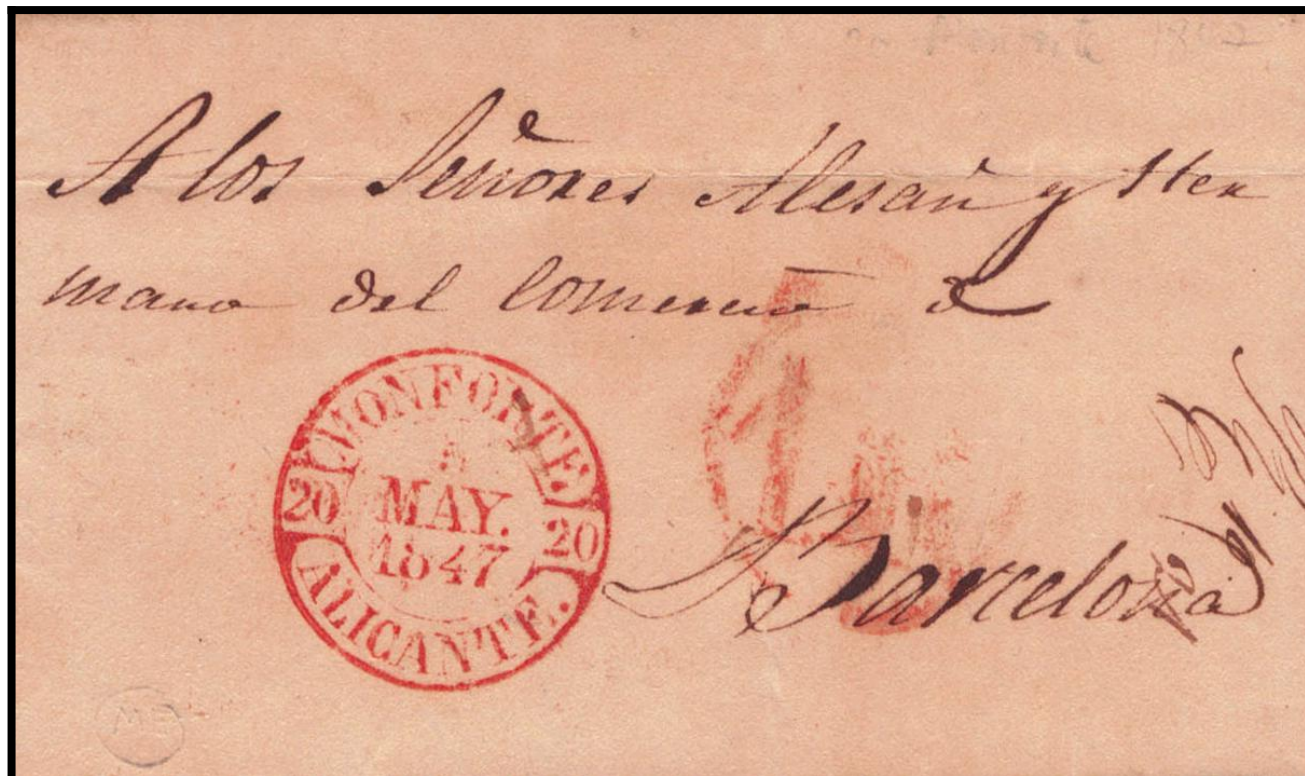 A los Señores Alesan y Her
mano del Comercio de
MONFORTE
5
MAY.
1847
20 20
ALICANTE.
Barcelona